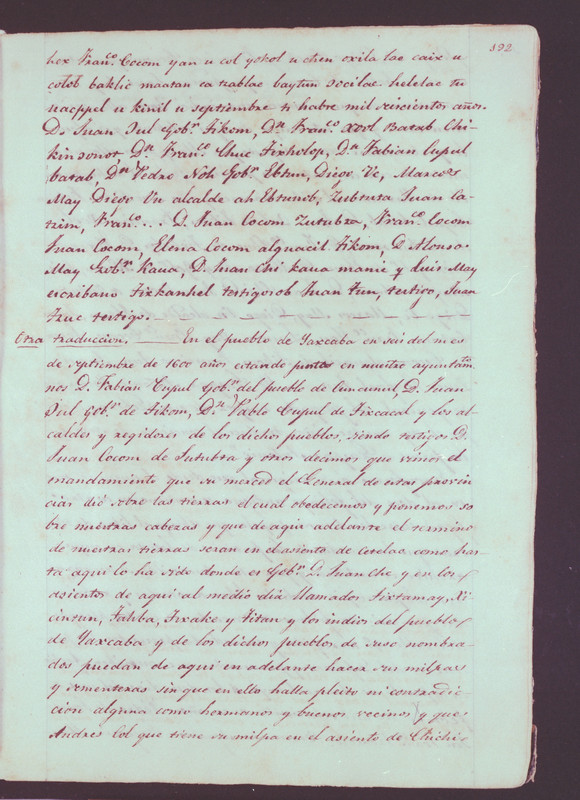 192
hex Franco. Cocom yan u col yokol u chen oxila lae caix u
colob baklic maatan ca tzablac baytun socilae helelae tu
uacppel u kinil u septiembre ti habre mil seicientos años.
D. Juan Dul Gobr. Tikom, Dn. Franco. Xool Batab Chi-
kinsonot, Dn. Franco. Chuc Tixholop, Dn. Fabian Cupul
batab, Dn. Pedro Noh Gobr. Ebtun, Diego Ve, Marcos
May Diego Un alcalde ah Ebtunob, Zubtuta Juan Ca-
tzim, Franco. . . D. Juan Cocom Zututza, Franco. Cocom
Juan Cocom, Elena Cocom alguacil Tikom, D. Alonso
May Gobr. Kaua, D. Juan Chi kaua manie y Luis May
escribano tixkanhel testigosob Juan Tun, testigo, Juan
Tzuc testigo.
Otra traduccion. — En el pueblo de Yaxcaba en seis del mes
de septiembre de 1600 años estando puntos en nuestro ayuntam-
nos D. Fabian Cupul Gobr. del pueblo de Cuncunul, D. Juan
Dul Gobr. de Tikom, Dn. Pablo Cupul de Tixcacal y los al-
caldes y regidores de los dichos pueblos, siendo testigos D.
Juan Cocom de Sututza y otros decimos que vimos el
mandamiento que su merced el General de estas provin-
cias dió sobre las tierras el cual obedecemos y ponemos so-
bre nuestras cabezas y que de aquí adelante el termino
de nuestras tierras seran en el asiento de cetelac como has-
ta aqui lo ha sido donde es Gobr. D. Juan Che y en los
asientos de aquí al medio dia llamados Tixtamay, Xi-
cintun, Tahba, Tixake y Titan y los indios del pueblo
de Yaxcaba y de los dichos pueblos de suso nombra-
dos puedan de aqui en adelante hacer sus milpas
y sementeras sin que en ello halla pleito ni contradic-
cion alguna como hermanos y buenos vecinos y que
Andres Col que tiene su milpa en el asiento de Chichi-